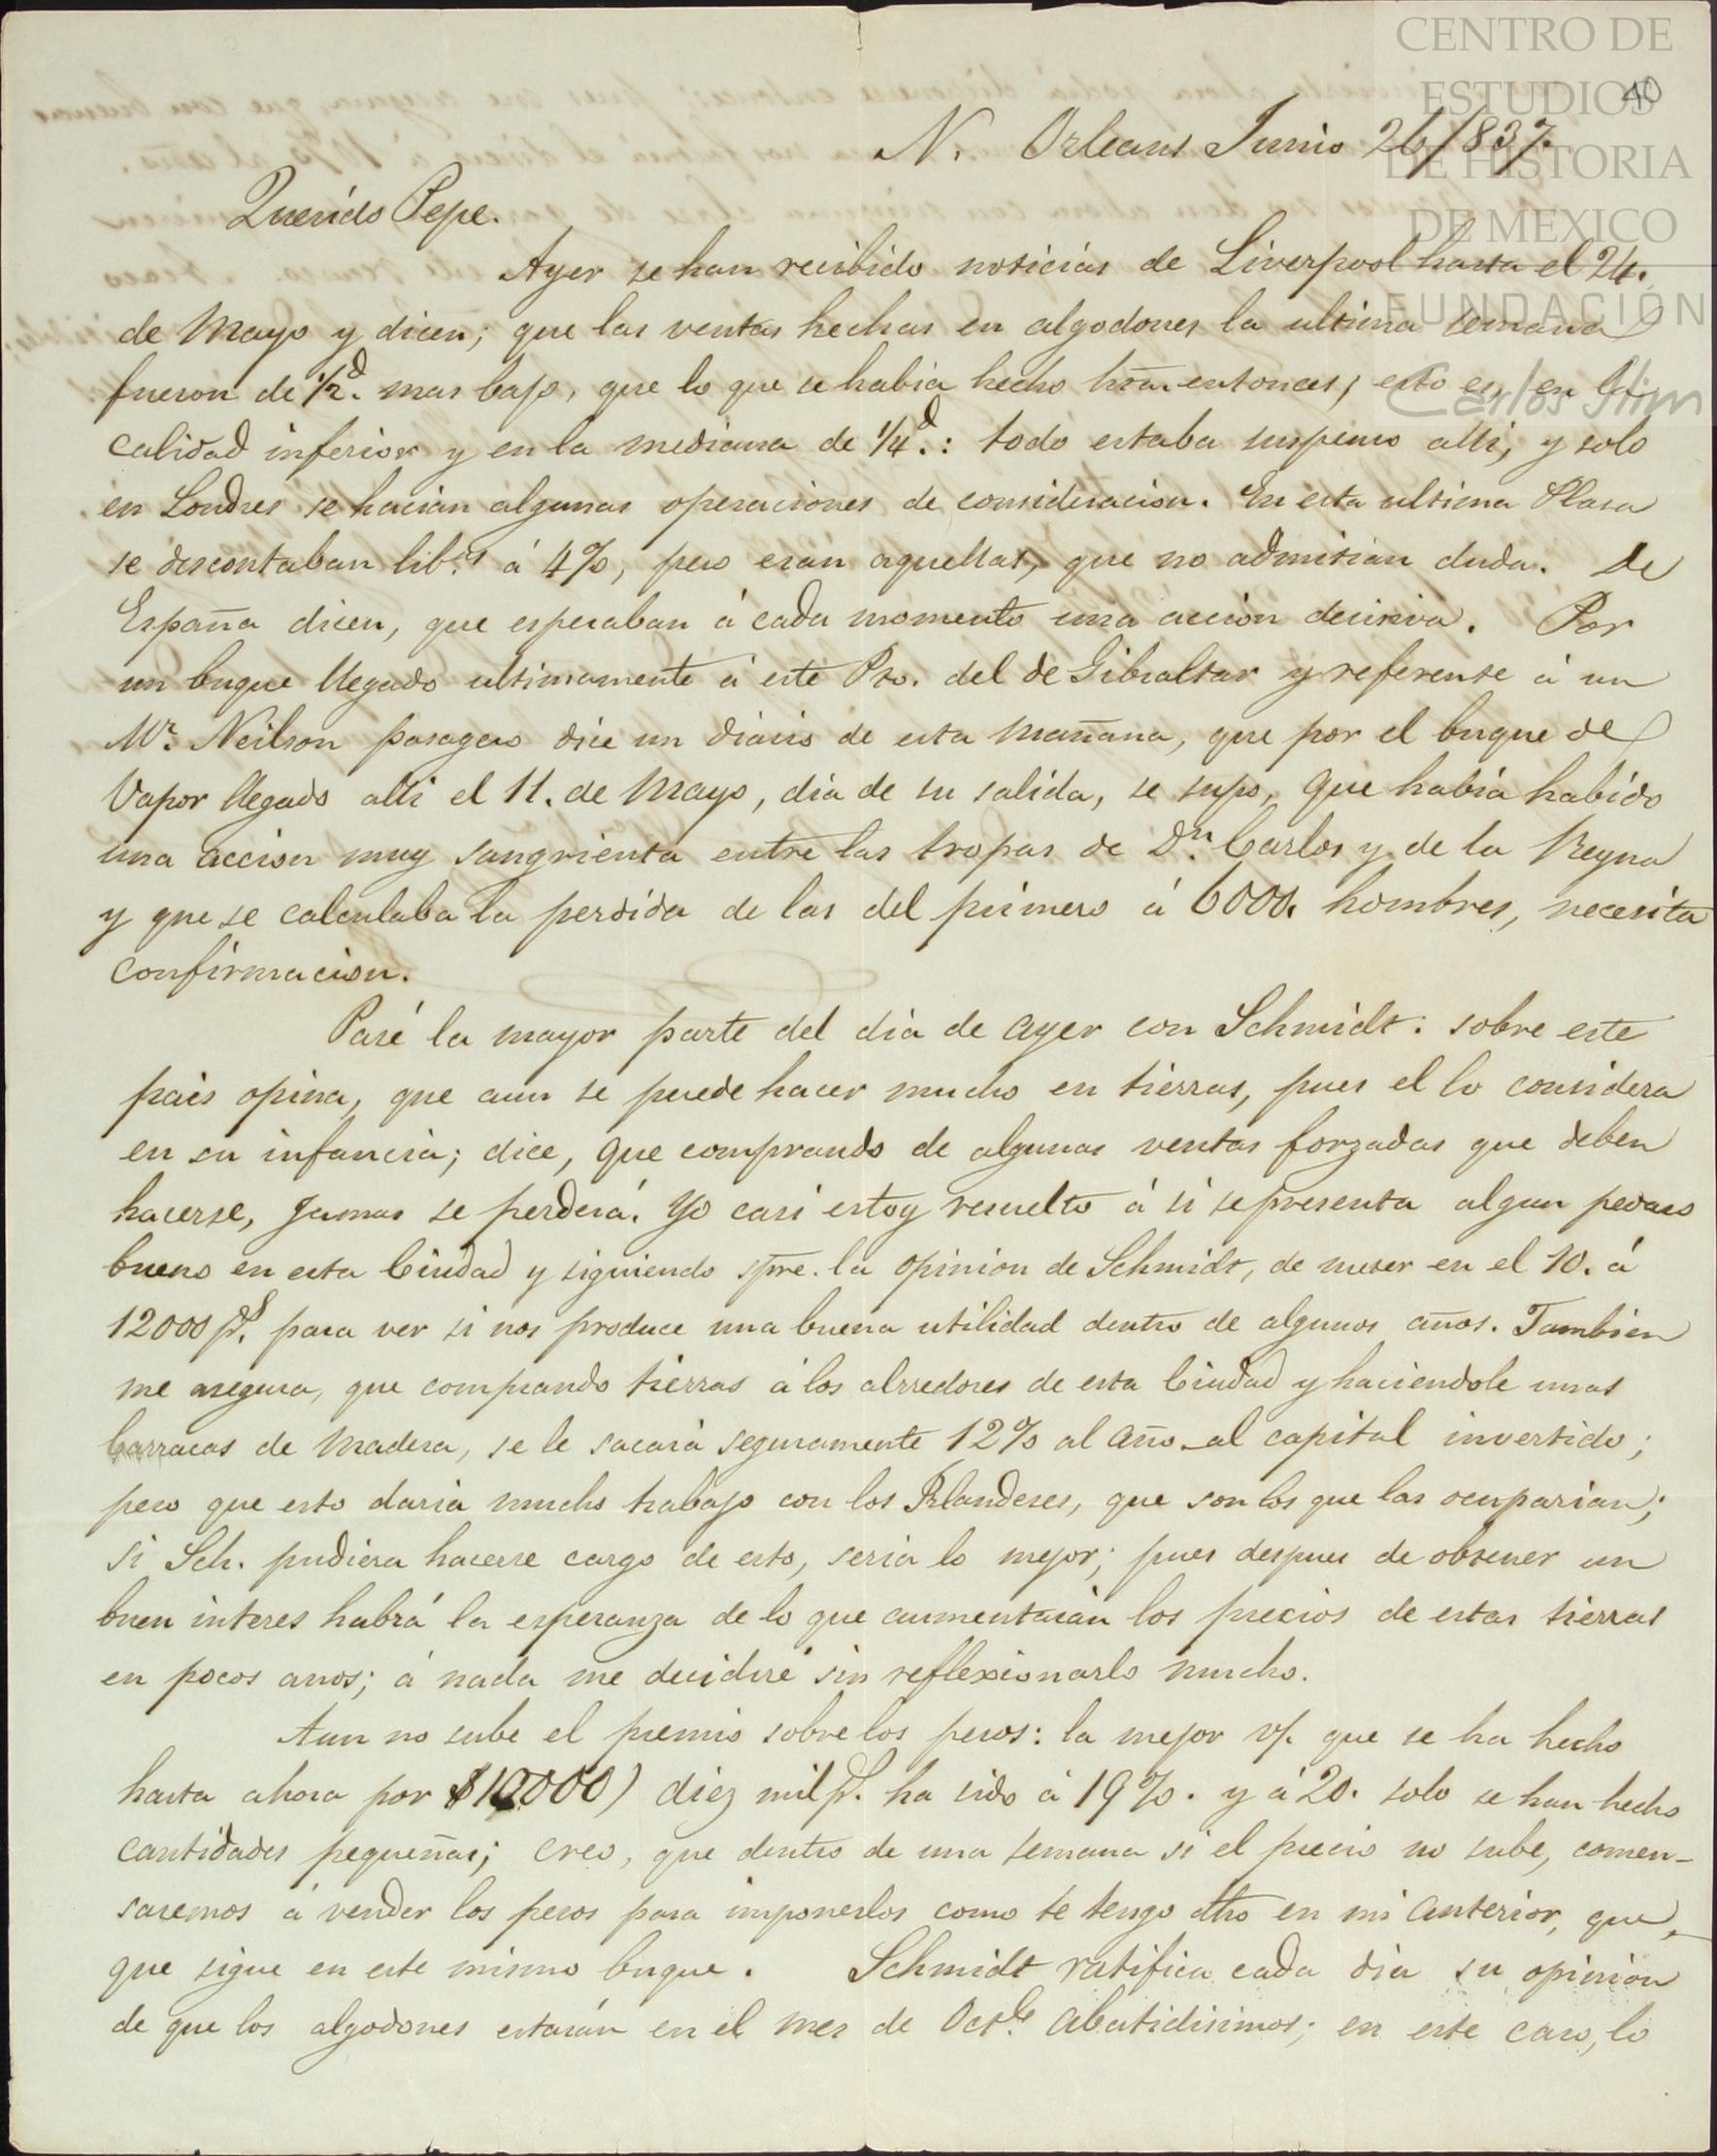 CENTRO DE
ESTUDIOS
DE HISTORIA
DE MEXICO
FUNDACIÓN
Carlos Slim
40
N. Orleans Junio 26/837.
Querido Pepe.
Ayer se han recibido noticias de Liverpool hasta el 24.
de Mayo y dicen; que las ventas hechas en algodones la ultima semana
fueron de 1/2d. mas bajo, que lo que se habia hecho hta. entonces; esto es, en la
calidad inferior y en la mediana de 1/4d.: todo estaba suspenso alli, y solo
en Londres se hacian algunas operaciones de consideracion. En esta ultima Plasa
se descontaban lib.s á 4%, pero eran aquellas, que no admitian duda. De
España dicen, que esperaban á cada momento una accion decisiva. Por
un buque llegado ultimamente á este Pto. del de Gibraltar y referente á un
Mr. Neilson pasagero dice un diario de esta mañana, que por el buque de
Vapor llegado alli el 11. de Mayo, dia de su salida, se supo, que habia habido
una accion muy sangrienta entre las tropas de Dn. Carlos y de la Reyna
y que se calculaba la perdida de las del primero á 6000. hombres, necesita
confirmacion.
Pasé la mayor parte del dia de ayer con Schmidt: sobre este
pais opina, que aun se puede hacer mucho en tierras, pues el lo considera
en su infancia; dice, que comprando de algunas ventas forzadas que deben
hacerse, jamas se perderá. Yo casi estoy resuelto á si se presenta algun pedaso
bueno en esta Ciudad y siguiendo spre. la opinion de Schmidt, de meter en el 10. á
12000 ps. para ver si nos produce una buena utilidad dentro de algunos años. Tambien
me asegura, que comprando tierras á los alrredores de esta Ciudad y haciendole unas
barracas de madera, se le sacará seguramente 12% al año al capital invertido;
pero que esto daria mucho trabajo con los Irlandeses, que son los que las ocuparian;
si Sch. pudiera hacerse cargo de esto, seria lo mejor; pues despues de obtener un
buen interes habrá la esperanza de lo que aumentarán los precios de estas tierras
en pocos anos; á nada me decidiré sin reflexionarlo mucho.
Aun no sube el premio sobre los pesos: la mejor v/. que se ha hecho
hasta ahora por $10000) diez mil ps. ha sido á 19%. y á 20. solo se han hecho
cantidades pequeñas; creo, que dentro de una semana si el precio no sube, comen-
saremos á vender los pesos para imponerlos como te tengo dho en mi anterior, que,
que sigue en este mismo buque. Schmidt ratifica cada dia su opinion
de que los algodones estarán en el mes de Octe. abatidisimos; en este caso, lo